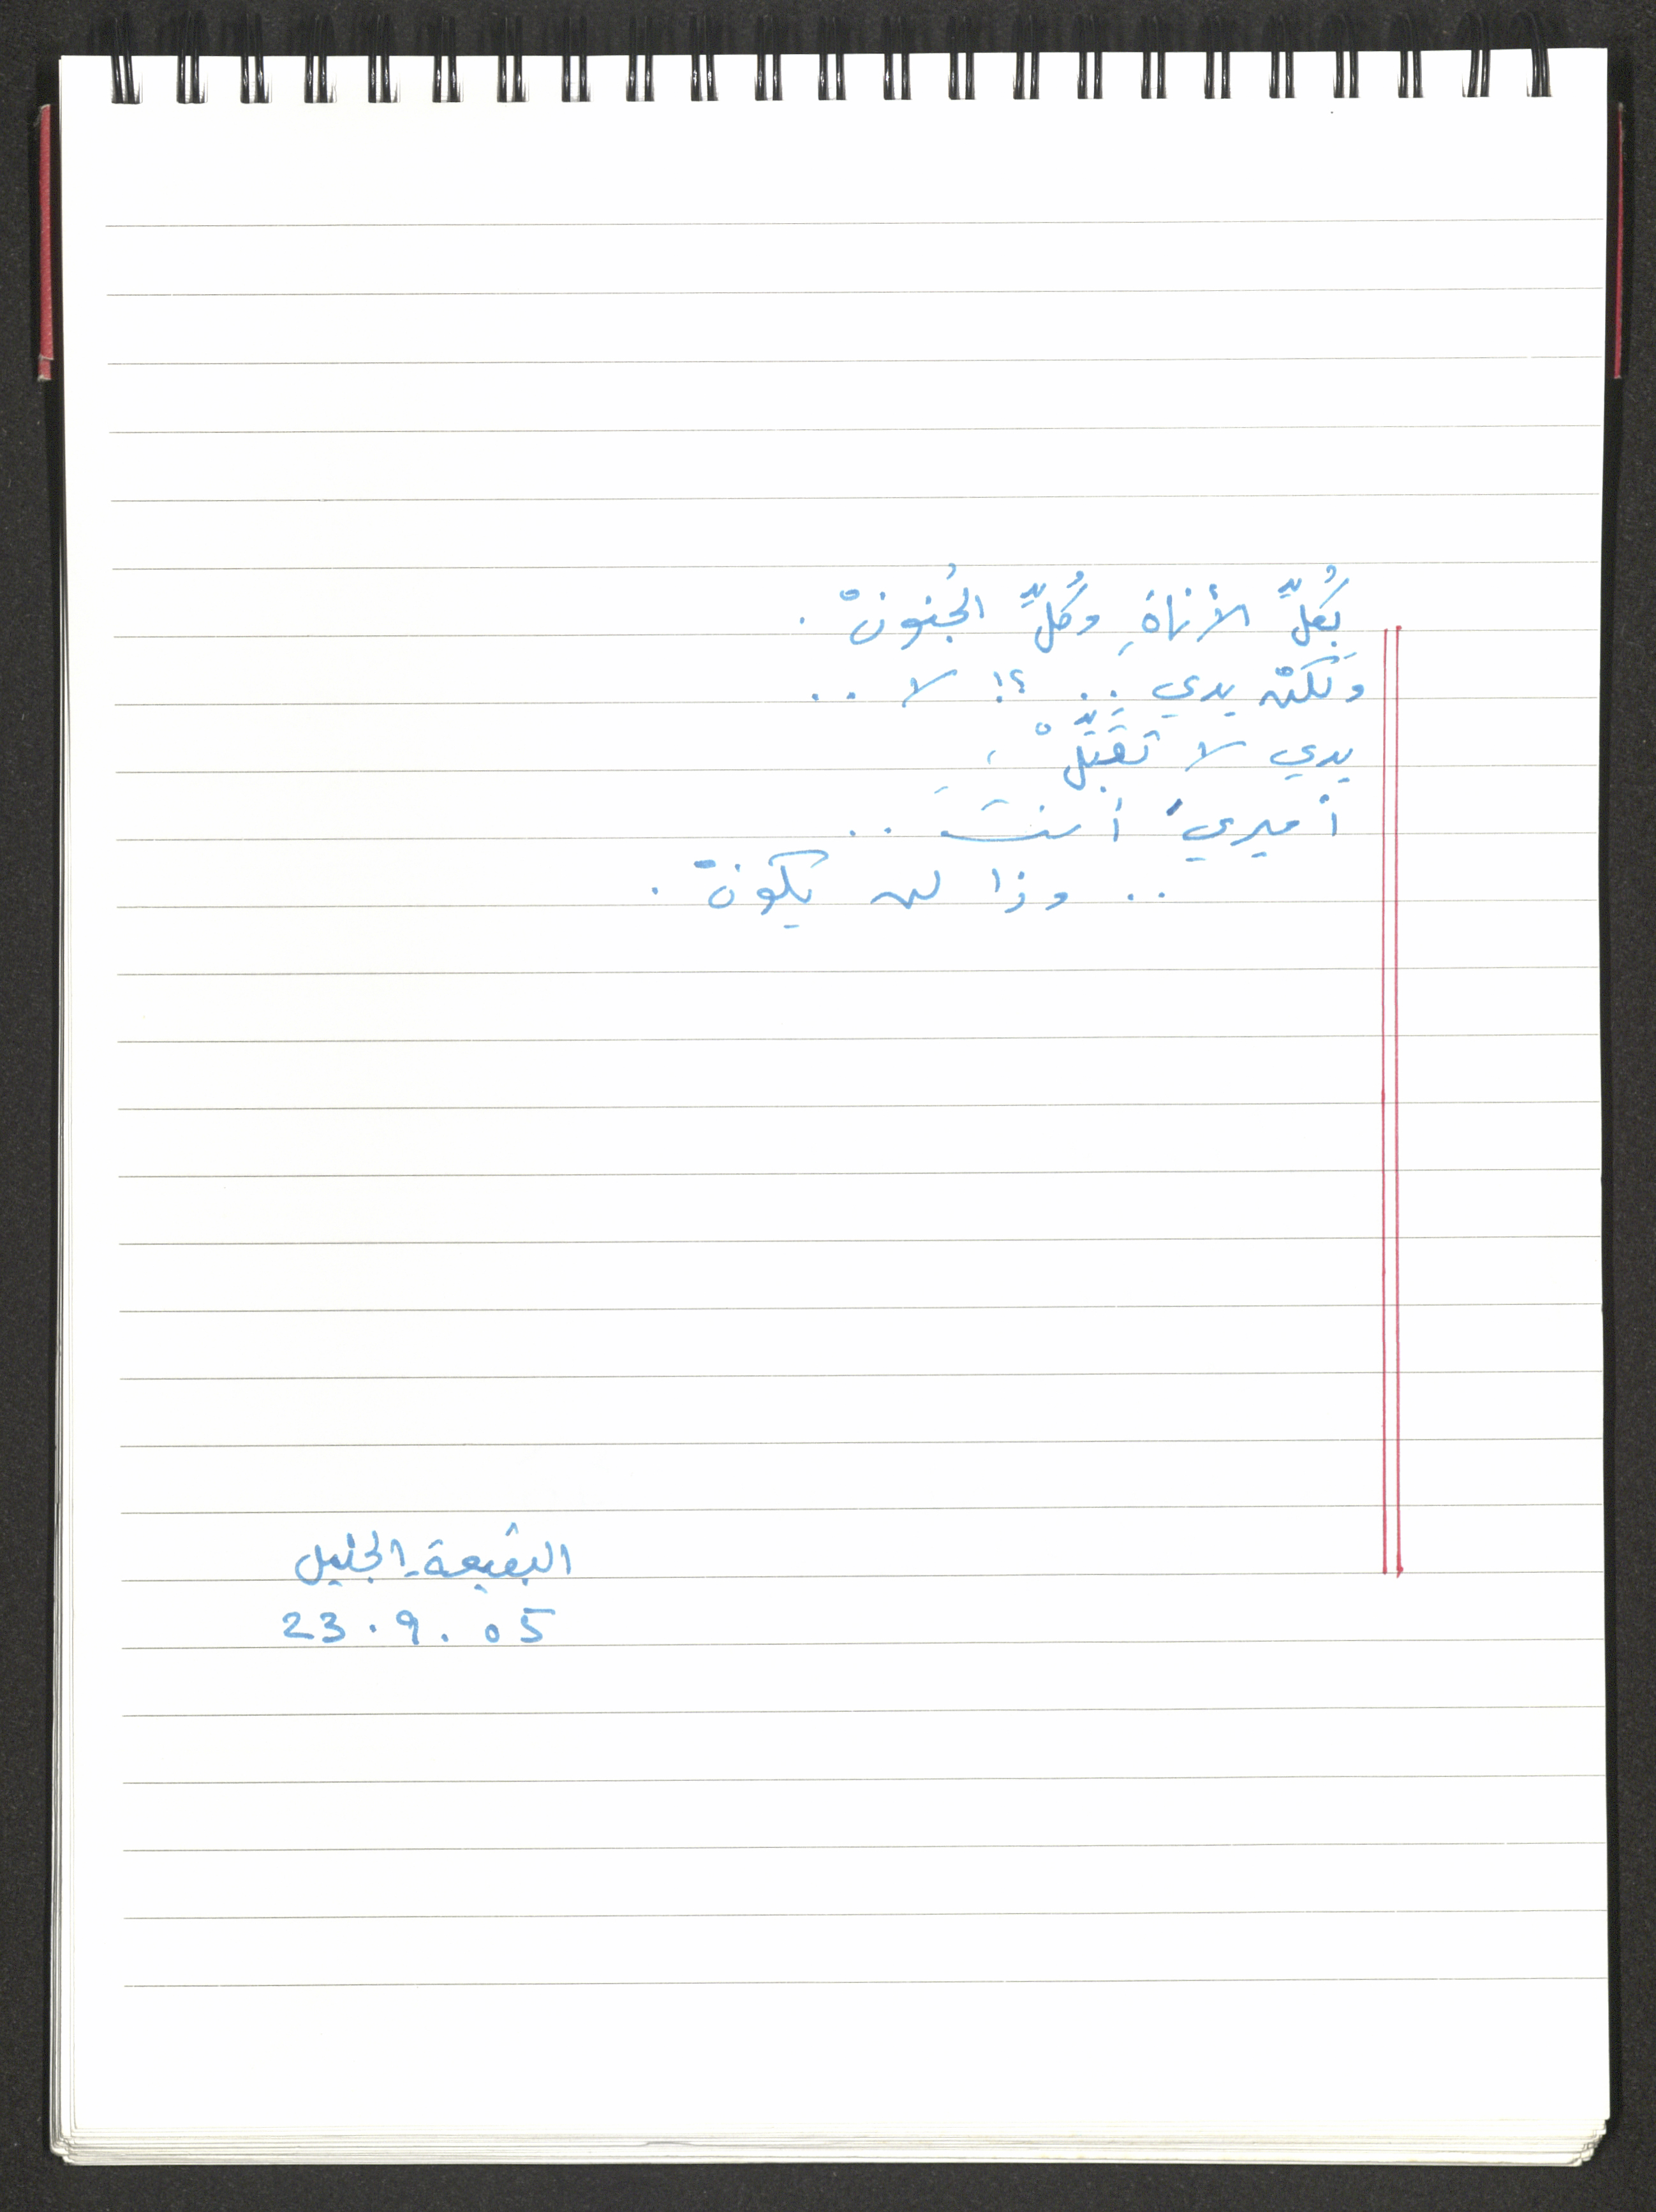 بكُلِّ الأناةِ وكُلِّ الجُنونْ .
وَلكنْ يدي .. ؟! لا ..
يدي لا تُقَبَّلْ ،
أميري أنتَ ..
.. وذا لن يكونْ .
البقيعة - الجليل
23 . 9 . 05